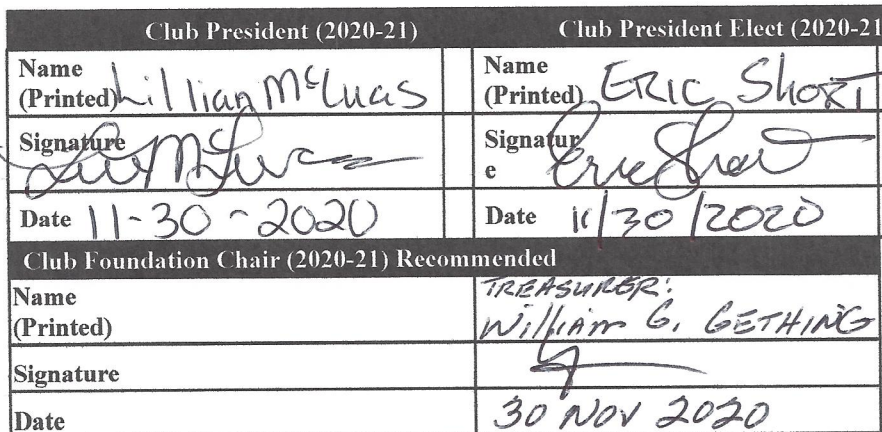 Club President (2020-21) Club President Elect (2020-21
Name Name
(Printed) Lillian McLucas (Printed) ERIC SHORT
Signature Signatur
e Eric Short
Date 11-30-2020 Date 11/30/2020
Club Foundation Chair (2020-21) Recommended
Name TREASURER:
(Printed) William G. GETHING
Signature
Date 30 NOV 2020